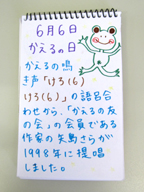 6月6日
かえるの日
かえるの鳴
き声「けろ(6)
けろ(6)」の語呂合
わせから、「かえるの友
の会」の会員である
作家の矢島さらが
1998年に提唱
しました。